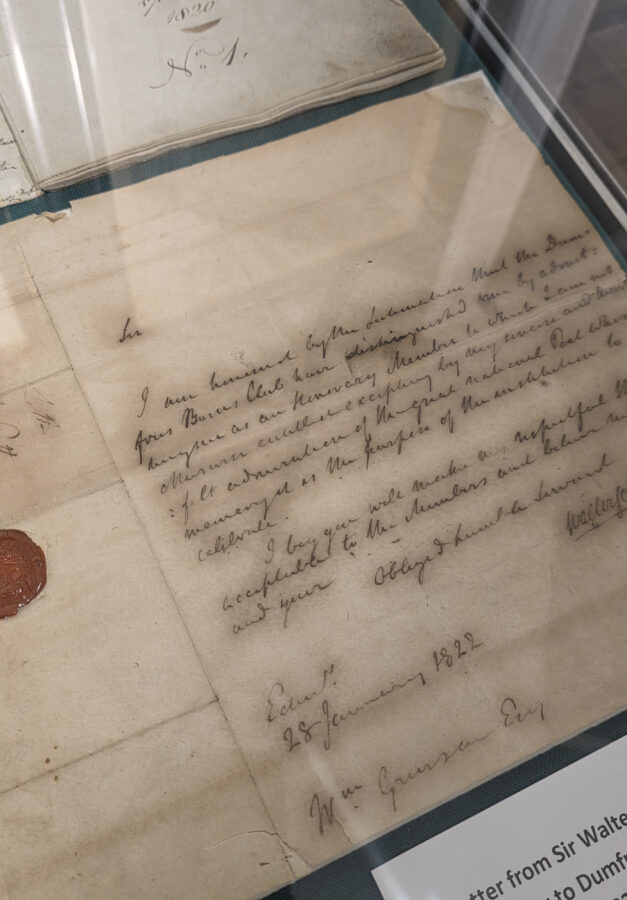 1830
No.
Sir
I am honoured by the intimation that the Dum-
fries Burns Club have distinguished me by admit-
ting me as an Honorary Member to which I am not
otherwise entitled excepting by my sincere and
felt admiration of the great national Poet whose
memory it is the purpose of the institution to
celebrate.
I beg you will make my respectful
acceptable to the Members and believe me
and your obliged humble servant
Walter
Edinr.
28 January 1822
Wm Grierson Esq
tter from Sir Walte
to Dumfr